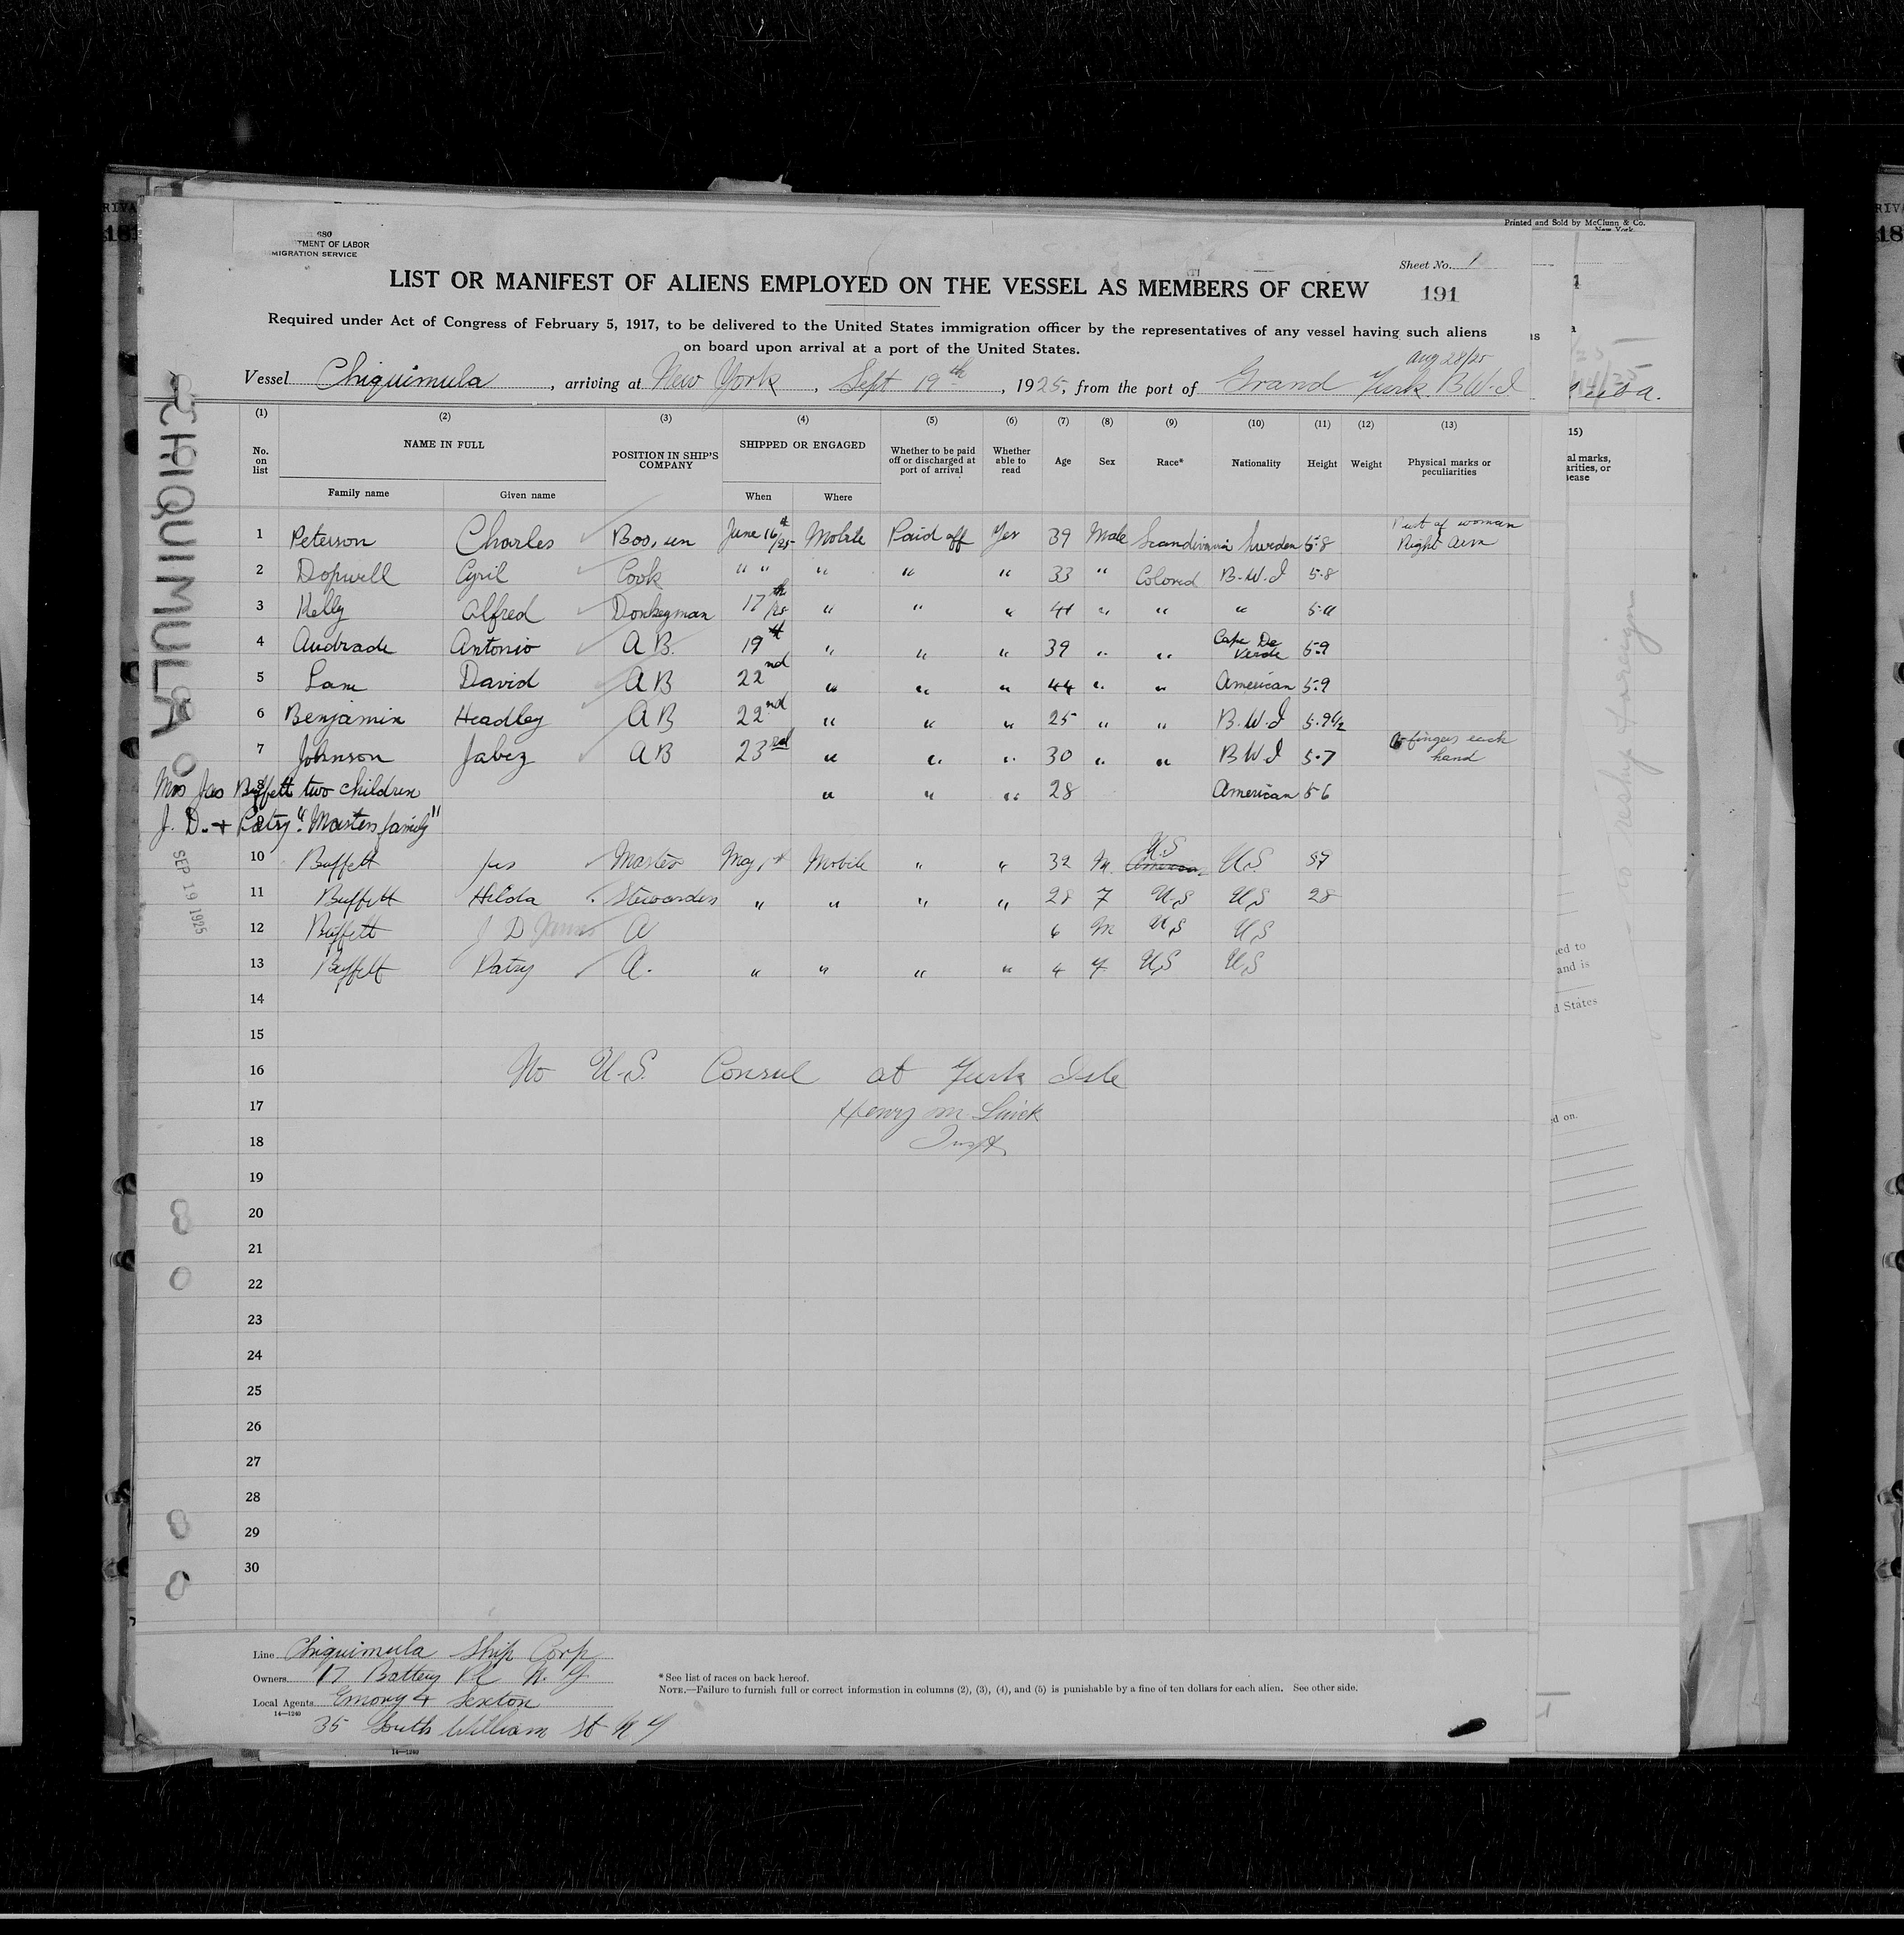 680
TMENT OF LABOR
MIGRATION SERVICE
Printed and Sold by McClunn & Co.
New York
Sheet No. 1
LIST OR MANIFEST OF ALIENS EMPLOYED ON THE VESSEL AS MEMBERS OF CREW
191
Required under Act of Congress of February 5, 1917, to be delivered to the United States immigration officer by the representatives of any vessel having such aliens
on board upon arrival at a port of the United States.
Aug 28/25
Vessel Chiquimula, arriving at New York, Sept 19th, 1925, from the port of Grand Turk B.W.I
(1) (2) (3) (4) (5) (6) (7) (8) (9) (10) (11) (12) (13)
No. on list NAME IN FULL POSITION IN SHIP'S COMPANY SHIPPED OR ENGAGED Whether to be paid off or discharged at port of arrival Whether able to read Age Sex Race* Nationality Height Weight Physical marks or peculiarities
Family name Given name When Where
1 Peterson Charles Bos,un June 16th/25 Mobile Paid off Yes 39 Male Scandinavia Sweden 5-8 Bust of woman Right Arm
2 Dopwell Cyril Cook " " " " " 33 " Colored B.W.I 5-8
3 Kelly Alfred Donkeyman 17th/25 " " " 41 " " " 5-11
4 Andrade Antonio A B. 19th " " " 39 " " Cape De Verde 5-9
5 Lam David A B 22nd " " " 44 " " American 5-9
6 Benjamin Headley A B 22nd " " " 25 " " B.W.I 5-9 1/2
7 Johnson Jabez A B 23rd " " " 30 " " B W I 5-7 6 fingers each hand
8 Mrs Jas Buffett two children " " " 28 American 5-6
9 J. D. + Patsy "Masters family"
10 Buffett Jas Master May 1st Mobile " " 32 M. American U.S U.S. 5-7
11 Buffett Hilda Stewardess " " " " 28 F U.S U.S 28
12 Buffett J D James A 6 M U.S U.S
13 Buffett Patsy A. " " " " 4 F U.S U.S
14
15
16 No U.S. Consul at Turk Isle
17 Henry M
18 Inspt
19
20
21
22
23
24
25
26
27
28
29
30
CHIQUIMULA
SEP 19 1925
Line Chiquimula Ship Corp
Owners 17 Battery Pl N.Y
Local Agents Emory & Sexton
14—1240
35 South William St N Y
*See list of races on back hereof.
NOTE.—Failure to furnish full or correct information in columns (2), (3), (4), and (5) is punishable by a fine of ten dollars for each alien. See other side.
14—1240
15)
al marks,
arities, or
sease
ed to
and is
d States
ed on.